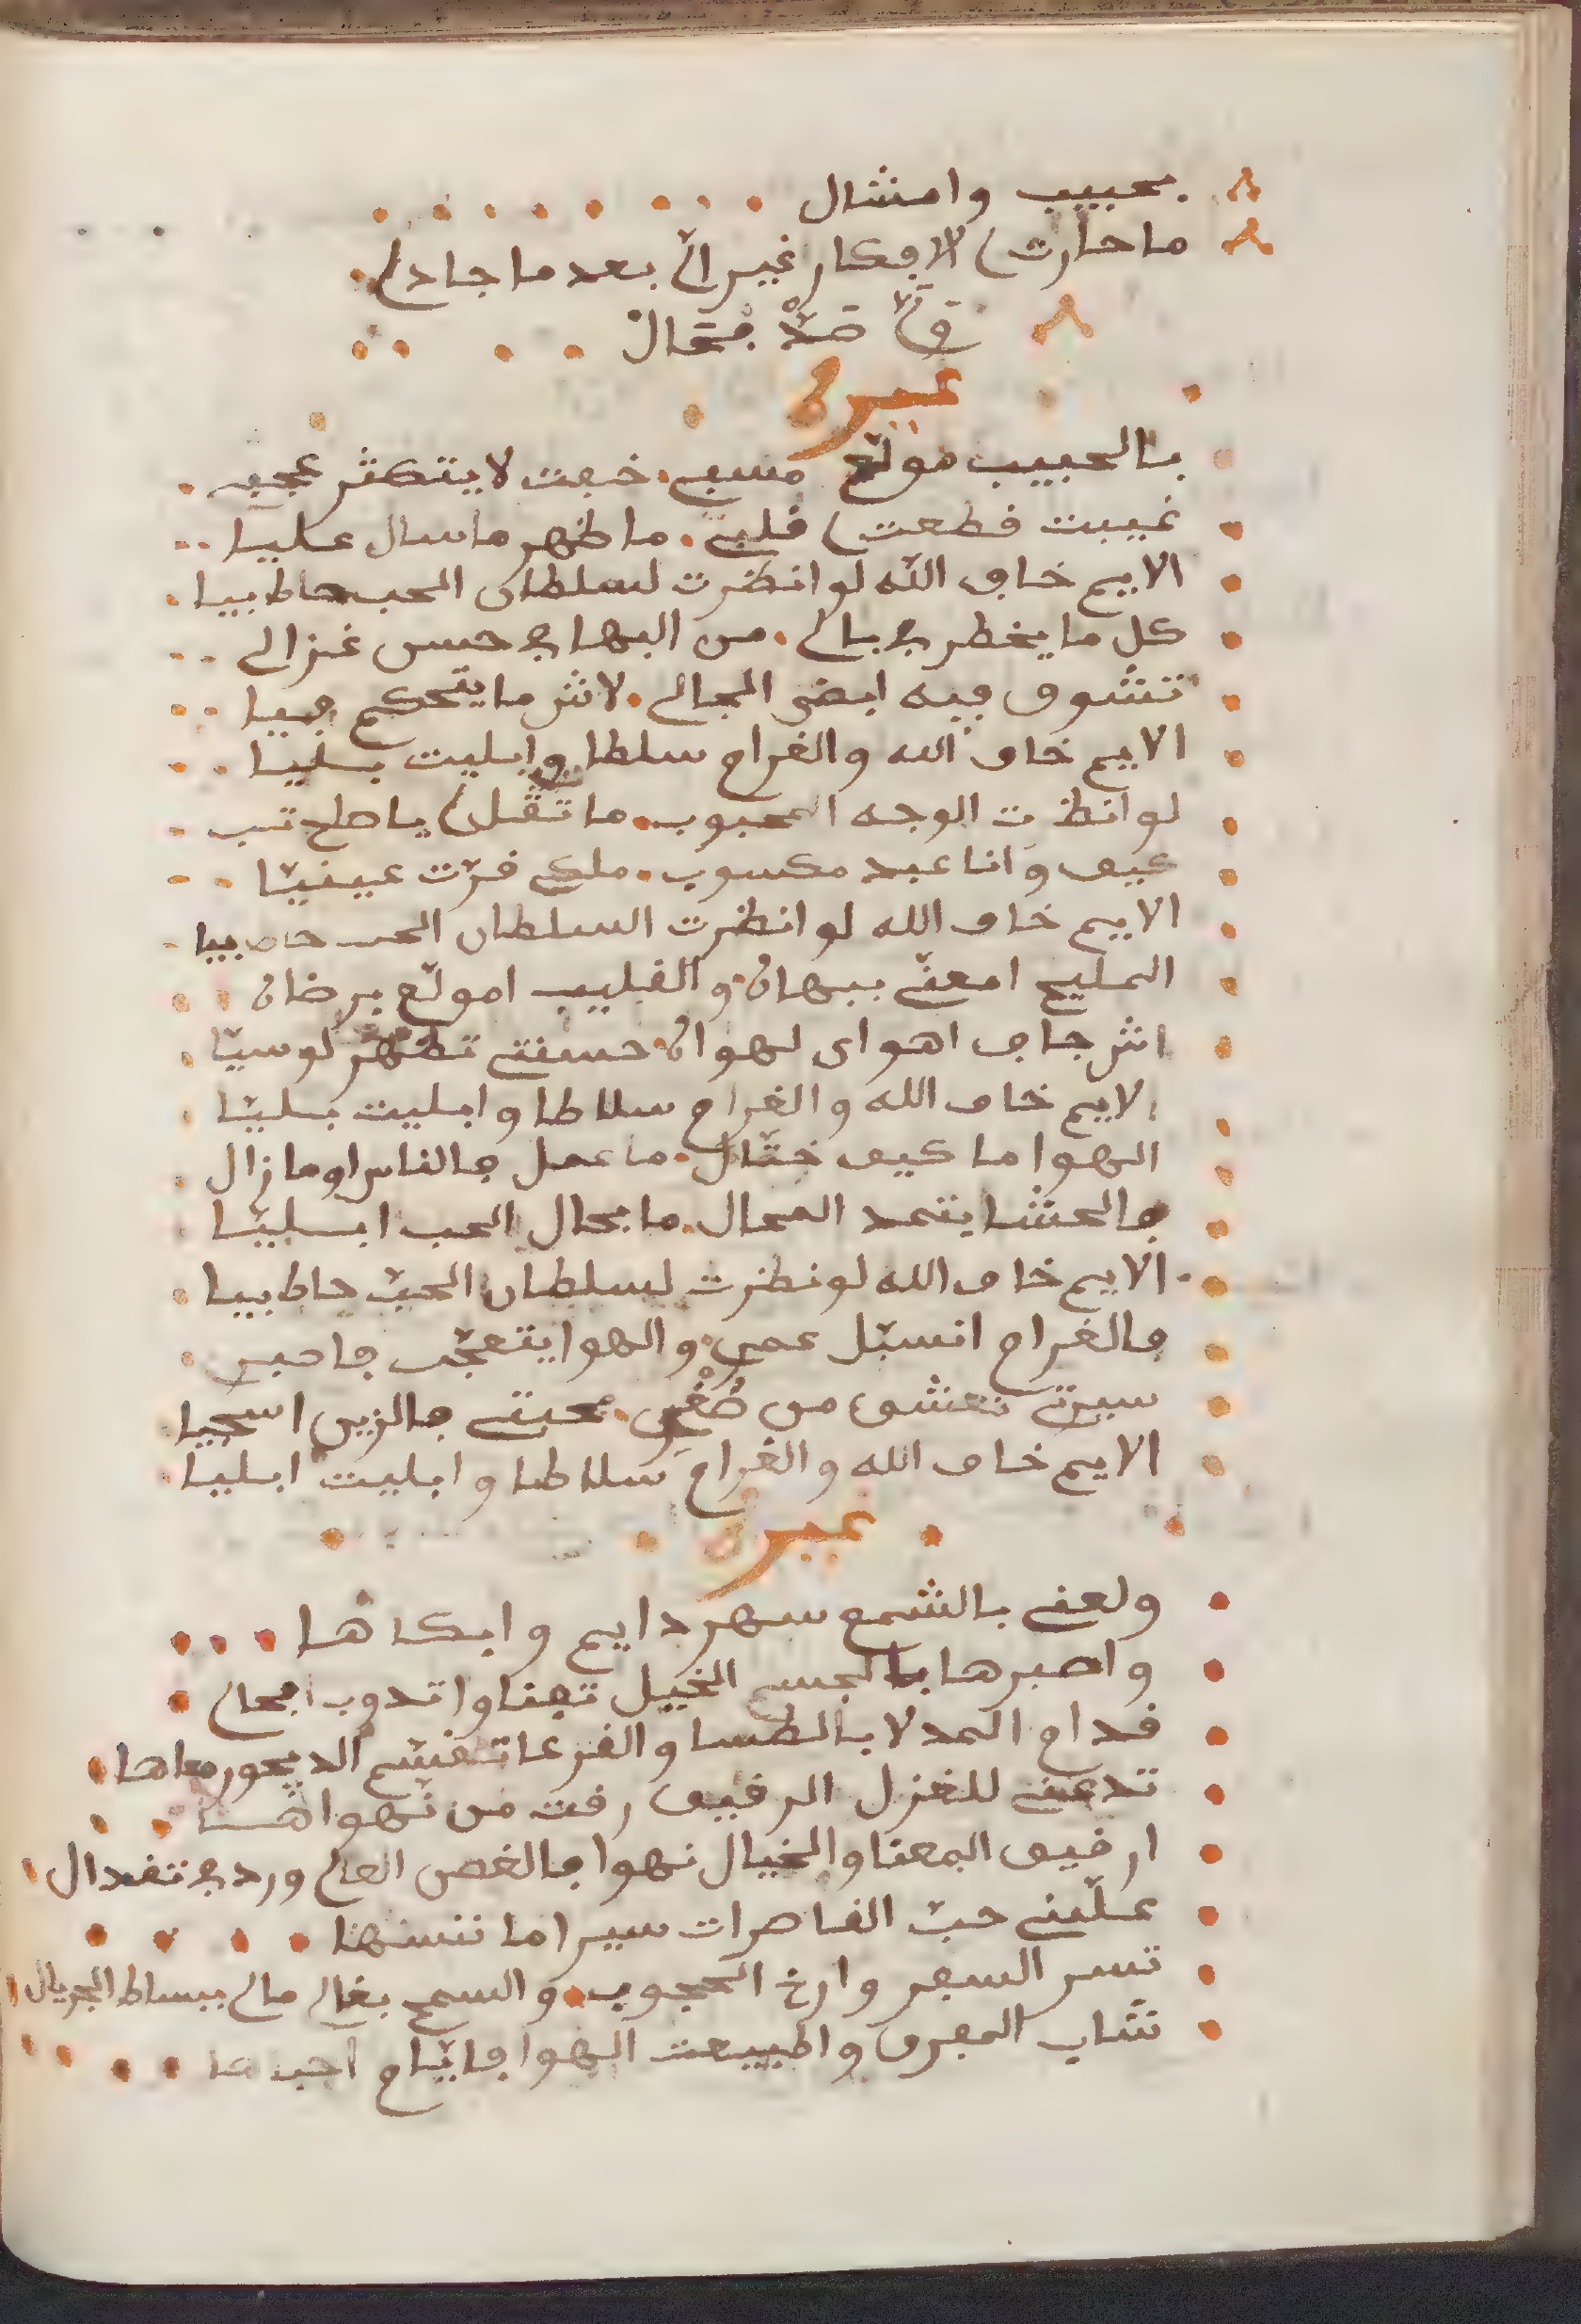 بحبيب وامثال
ماحارت الافكار غير الى بعد ما جاد
صد محال
غيره
بالحبيب مولع مسبي خفت لا يتكثر عجبه
غيبت قطعت قلبي ما ظهر ما سال عليا
الايم خاف الله لو انظرت لسلطان الحب حاط بيا
كل ما يخطر في بالي من البها في حسن غزالي
تشوق فيه ابضى المجالي لاش ما يتحكم فييا
الايم خاف الله والغرام سلطا وابليت بليا
لو انظرت الوجه المحبوب ما تقل لي يا صاح تب
كيف وانا عبد مكسوب ملكي قرت عينيا
الايم خاف الله لو انظرت السلطان الحب حاط بيا
المليح امعني ببهاه والقليب امولع برضاه
اش جاب اهواى لهواه حسنتي تظهر لو سيا
الايم خاف الله والغرام سلاطا وابليت بليا
الهوا ما كيف ختال ما عمل فالناس اوما زال
فالحشا يتمد المحال ما بحال الحب ابليا
الايم خاف الله لو نظرت لسلطان الحب حاط بيا
فالغرام انسبل عمري والهوا يتعجب فاصبر
سيرتي نعشق من صغري محبتي فالزين اسجيا
الايم خاف الله والغرام سلاطا وابليت ابليا
غيره
ولعني بالشمع سهر دايم وابكاها
واصبرها بالجسم النحيل تفنا واتدوب ابحالي
قدام المدلا بالطسا والفرعا تغشم الديجور معاها
تدعني للغزل الرقيق رقت من نهواها
ارقيق المعنا والخيال نهوا فالغصن العالي وردي تقدال
علمني حب القاصرات سيرا ما ننسها
تسر السفر وارخ الحجوب والسمع بغالي مالي ببساط الجريال
شاب المفرق واطبيعت الهوا فايام احباها